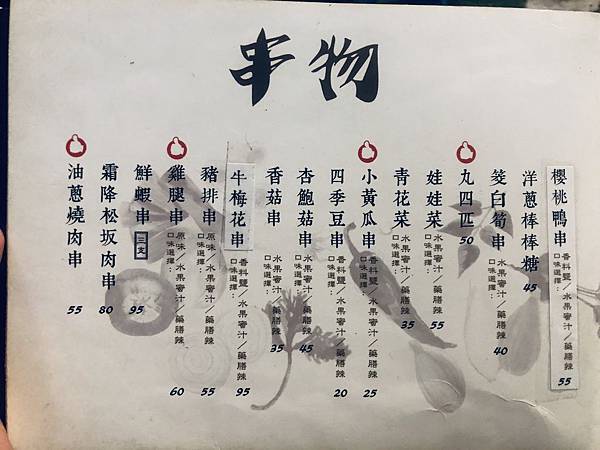 串物
櫻桃鴨串 口味選擇：香料鹽／水果蜜汁／藥膳辣 55
洋蔥棒棒糖 45
筊白筍串 40
丸四匹 50
娃娃菜 口味選擇：水果蜜汁／藥膳辣 55
青花菜 口味選擇：水果蜜汁／藥膳辣 35
小黃瓜串 口味選擇：香料鹽／水果蜜汁／藥膳辣 25
四季豆串 口味選擇：香料鹽／水果蜜汁／藥膳辣 20
杏鮑菇串 口味選擇：水果蜜汁／藥膳辣 45
香菇串 口味選擇：水果蜜汁／藥膳辣 35
牛梅花串 口味選擇：香料鹽／水果蜜汁／藥膳辣 95
豬排串 口味選擇：原味／水果蜜汁／藥膳辣 55
雞腿串 口味選擇：原味／水果蜜汁／藥膳辣 60
鮮蝦串 三支 95
霜降松坂肉串 80
油蔥燒肉串 55